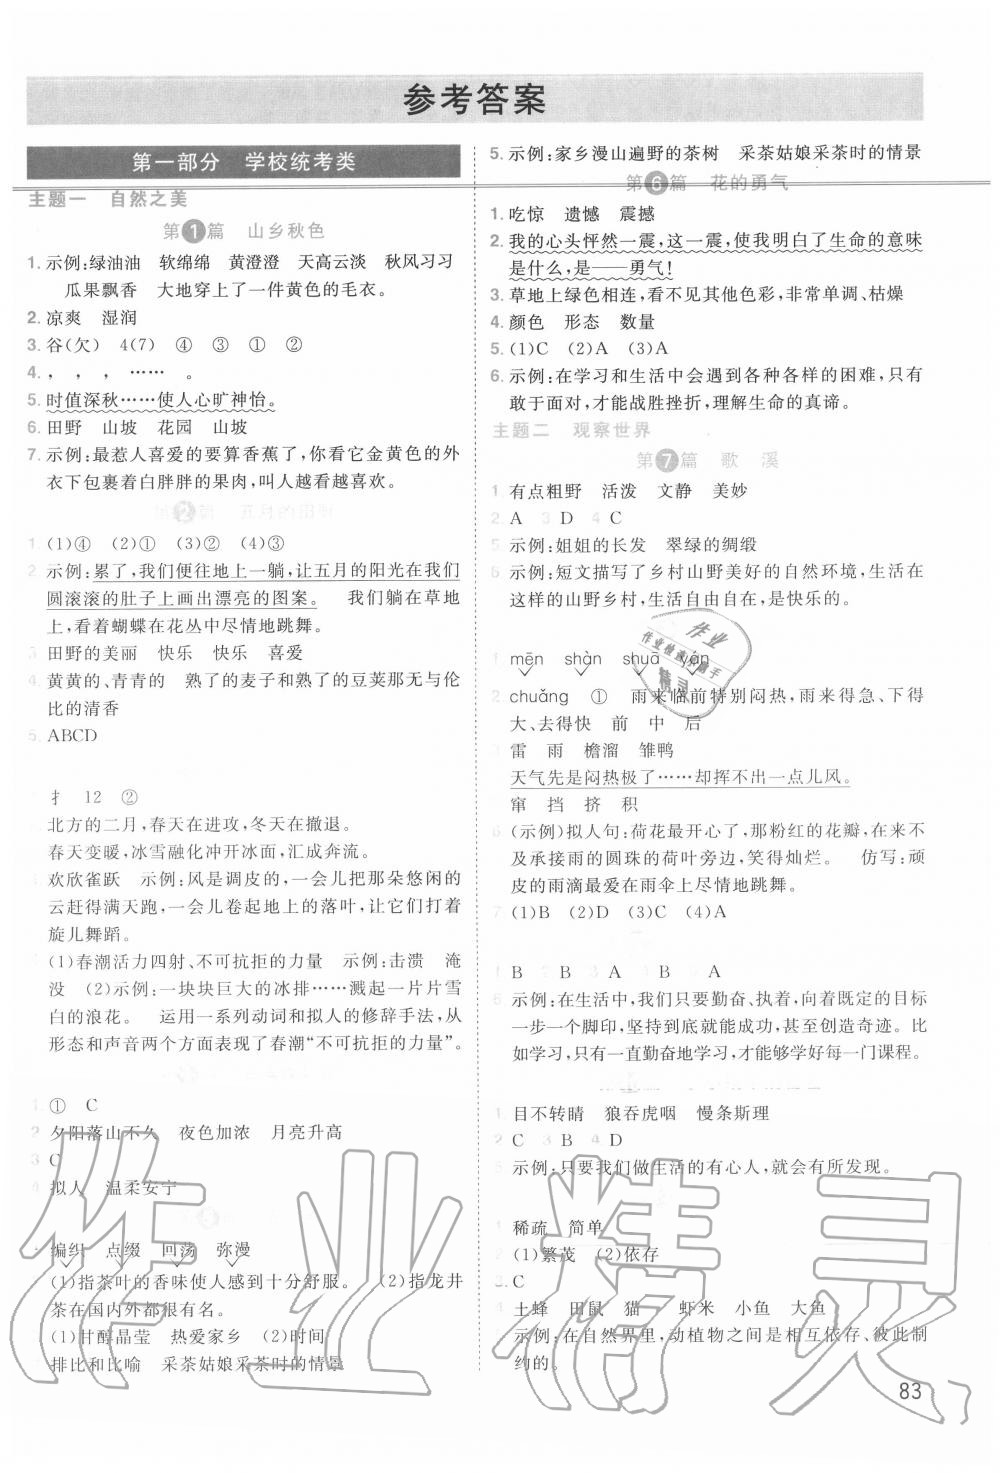 参考答案
第一部分 学校统考类
主题一 自然之美
第1篇 山乡秋色
1. 示例:绿油油 软绵绵 黄澄澄 天高云淡 秋风习习
瓜果飘香 大地穿上了一件黄色的毛衣。
2. 凉爽 湿润
3. 谷(欠) 4(7) ④ ③ ① ②
4. , , , …… 。
5. 时值深秋……使人心旷神怡。
6. 田野 山坡 花园 山坡
7. 示例:最惹人喜爱的要算香蕉了,你看它金黄色的外
衣下包裹着白胖胖的果肉,叫人越看越喜欢。
第2篇 五月的田野
1. (1)④ (2)① (3)② (4)③
2. 示例:累了,我们便往地上一躺,让五月的阳光在我们
圆滚滚的肚子上画出漂亮的图案。 我们躺在草地
上,看着蝴蝶在花丛中尽情地跳舞。
3 田野的美丽 快乐 快乐 喜爱
4. 黄黄的、青青的 熟了的麦子和熟了的豆荚那无与伦
比的清香
5. ABCD
扌 12 ②
北方的二月,春天在进攻,冬天在撤退。
春天变暖,冰雪融化冲开冰面,汇成奔流。
欢欣雀跃 示例:风是调皮的,一会儿把那朵悠闲的
云赶得满天跑,一会儿卷起地上的落叶,让它们跟着
旋儿舞蹈。
(1)春潮活力四射、不可抗拒的力量 示例:击溃 淹
没 (2)示例:一块块巨大的冰排……溅起一片片雪
白的浪花。 运用一系列动词和拟人的修辞手法,从
形态和声音两个方面表现了春潮“不可抗拒的力量”。
1. ① C
2 夕阳落山不久 夜色加浓 月亮升高
3 C
4 拟人 温柔安宁
编织 点缀 回荡 弥漫
(1)指茶叶的香味使人感到十分舒服。 (2)指龙井
茶在国内外都很有名。
(1)甘醇晶莹 热爱家乡 (2)时间
排比和比喻 采茶姑娘采茶时的情景
5. 示例:家乡漫山遍野的茶树 采茶姑娘采茶时的情景
第6篇 花的勇气
1. 吃惊 遗憾 震撼
2. 我的心头怦然一震,这一震,使我明白了生命的意味
是什么,是——勇气!
3. 草地上绿色相连,看不见其他色彩,非常单调、枯燥
4. 颜色 形态 数量
5. (1)C (2)A (3)A
6. 示例:在学习和生活中会遇到各种各样的困难,只有
敢于面对,才能战胜挫折,理解生命的真谛。
主题二 观察世界
第7篇 歌 溪
1 有点粗野 活泼 文静 美妙
2. A 3 D 4 C
5 示例:姐姐的长发 翠绿的绸缎
6 示例:短文描写了乡村山野美好的自然环境,生活在
这样的山野乡村,生活自由自在,是快乐的。
1 mēn shàn shuā yán
2 chuǎng ① 雨来临前特别闷热,雨来得急、下得
大、去得快 前 中 后
雷 雨 檐溜 雏鸭
天气先是闷热极了……却挥不出一点儿风。
窜 挡 挤 积
6 (示例)拟人句:荷花最开心了,那粉红的花瓣,在来不
及承接雨的圆珠的荷叶旁边,笑得灿烂。 仿写:顽
皮的雨滴最爱在雨伞上尽情地跳舞。
7 (1)B (2)D (3)C (4)A
1 B 2 B 3 A 4 B 5 A
6 示例:在生活中,我们只要勤奋、执着,向着既定的目标
一步一个脚印,坚持到底就能成功,甚至创造奇迹。比
如学习,只有一直勤奋地学习,才能够学好每一门课程。
1 目不转睛 狼吞虎咽 慢条斯理
2 C 3 B 4 D
5 示例:只要我们做生活的有心人,就会有所发现。
1 稀疏 简单
2 (1)繁茂 (2)依存
3 C
4 土蜂 田鼠 猫 虾米 小鱼 大鱼
示例:在自然界里,动植物之间是相互依存、彼此制
约的。
83
作业
作业检查小帮手
精灵
作业精灵